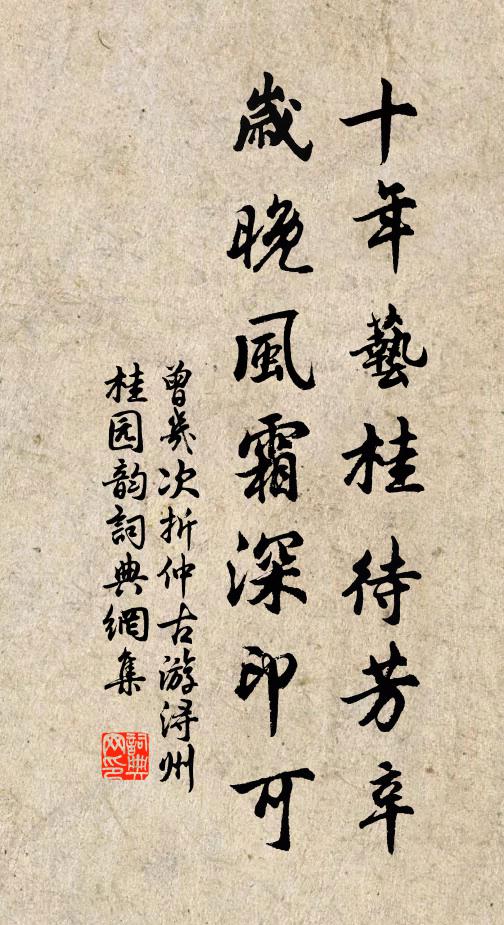 十年藝桂待芳辛
歲晚風霜深印可
曾幾次折仲古游潯州
桂园韵詞典網集
詞典网印